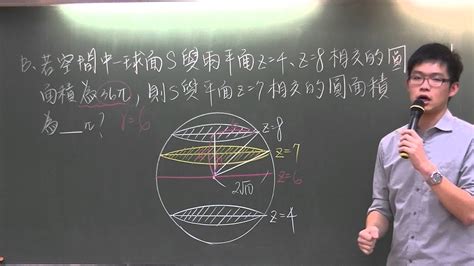 B、若空間中一球面S與兩平面z=4、z=8相交的圓
面積為36π,則S與平面z=7相交的圓面積
為__π? r=6
z=8
z=7
z=6
2√10
z=4